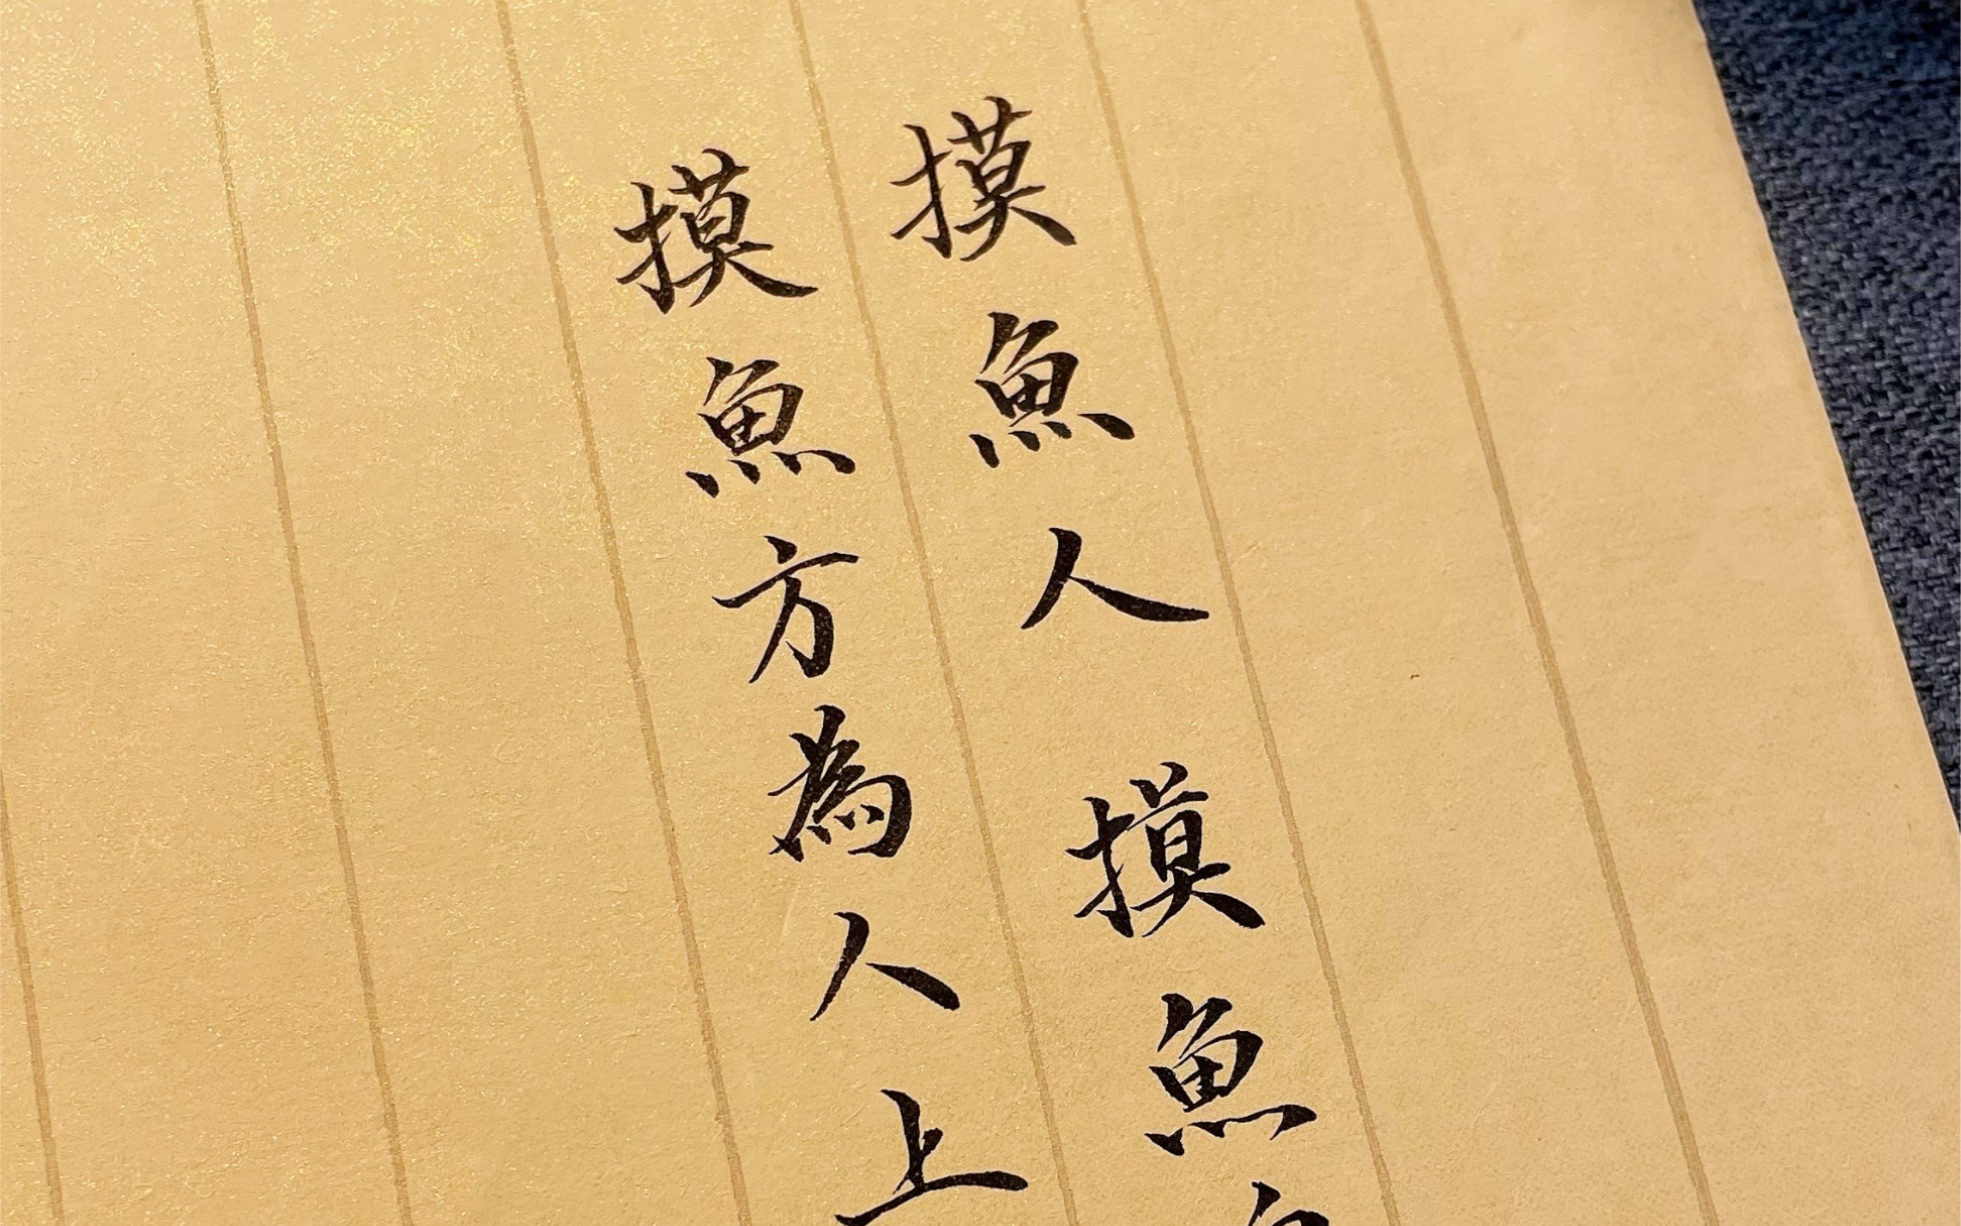 摸魚人 摸魚
摸魚方為人上